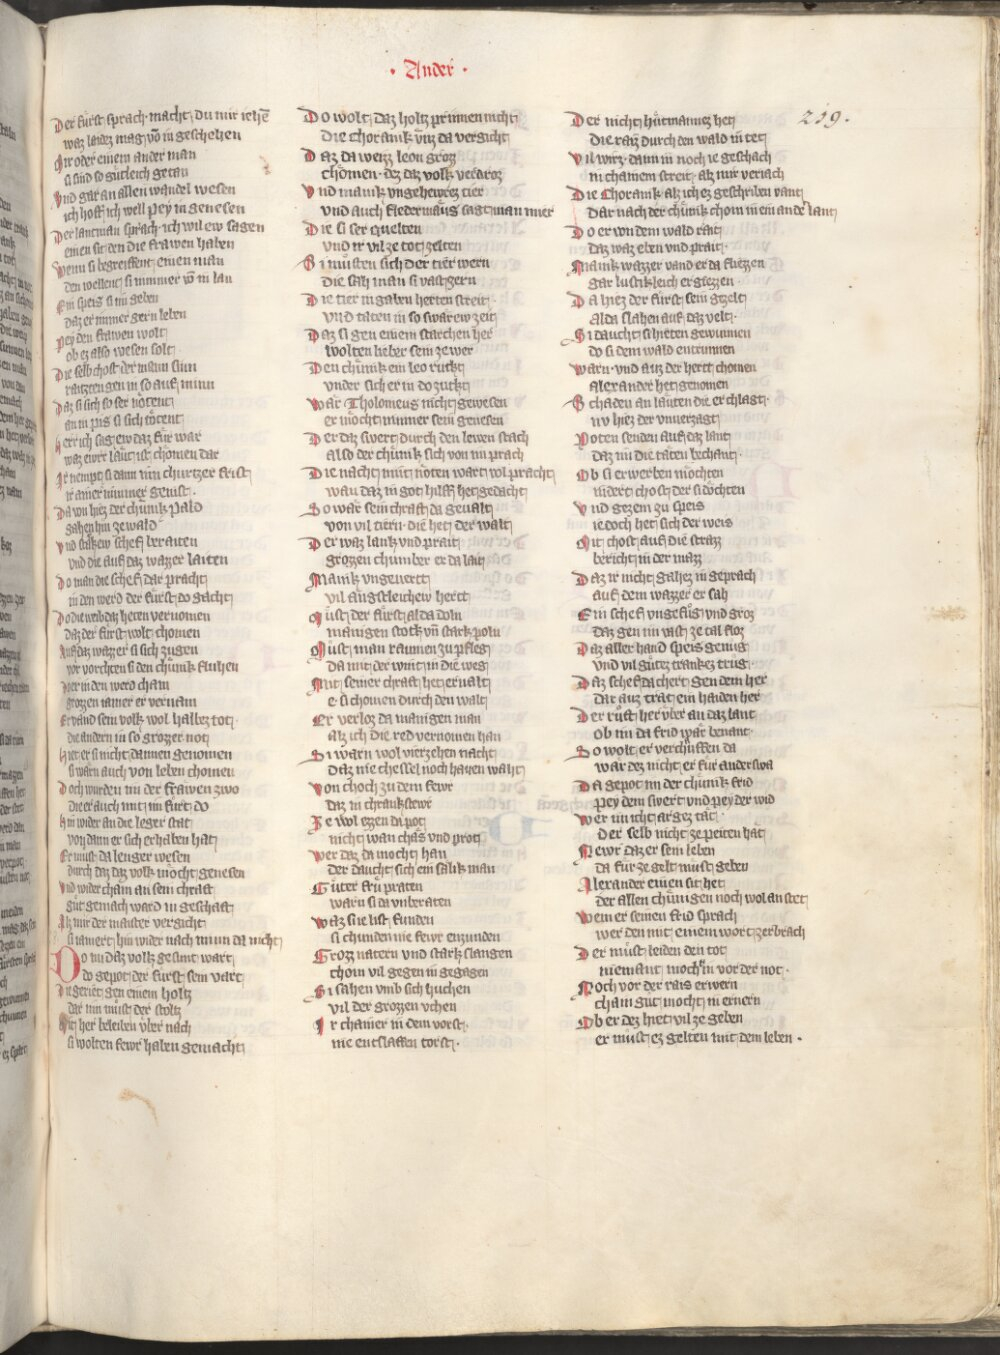 · Ander ·
219.
Der fürst sprach macht du mir iehē
waz laidez mag vō in geschehen
Ir oder einem ander man
si sind so gütleich getan
Vnd gar an allen wandel wesen
ich hoff ich well pey in genesen
Der lantman sprach ich wil ew sagen
einen sit den die frawen haben
Wenn si begreiffent einen man
den wellent si nimmer vō in lan
Ein speis si im geben
daz er immer gern leben
Pey den frawen wolt
ob ez also wesen solt
Die selb chost der mann sinn
raitzent gen in so auf minn
Daz si sich so ser nötent
an in pis si sich tötent
Herr ich sag ew daz für war
waz ewr läut ist chömen dar
Ir nempt si dann inn churtzer frist
ir aner nimmer genist ·
Da wu hiez der chünik pald
gahen hin ze wald
Vnd starkew schef beraiten
vnd die auf daz wazzer laiten
Do man die schef dar pracht
in den werd der fürst do gacht
Do die weib daz heten vernomen
daz der fürst wolt chomen
Auf daz wazzer si sich zugen
vor vorchten si den chünik fluhen
Do er in den werd cham
grozzen iamer er vernam
Er vand sein volk wol halbez tot
die andern in so grozzer not
Hiet er si nicht dannen genomen
si wärn auch von leben chomen
Doch wurden im der frawen zwo
die er auch mit im fürt do
Hin wider an die leger stat
von dann er sich erhaben hat
Er must da lenger wesen
durch daz daz volk möcht genesen
Vnd wider cham an sein chraft
güt gemach ward in geschaft
Als mir der maister vergicht
si iamert hin wider nach minn da nicht
Do nu daz volk gesunt wart
do gepot der fürst sein vart
In geriet gen einem holtz
dar inn must der stoltz
Mit her beleiben vber nach
si wolten fewr haben gemacht
Do wolt daz holtz prinnen nicht
Die Choranik vnz da vergicht
Daz da weizz leon groz
chömen · dez daz volk verdroz
Vnd manik vngehewrez tier
vnd auch fledermäus sagt man mier
Die si ser quelten
vnd ir vil ze tot zelten
Si müsten sich der tier wern
die sah man si vast gern
Die tier in gaben herten streit
vnd täten in so swärew zeit
Daz si gen einem starchen her
wolten lieber sein ze wer
Den chünik ein leo ruckt
vnder sich er in do zuckt
Wär Tholomeus nicht gewesen
er möcht nimmer sein genesen
Der daz swert durch den lewen stach
also der chünik sich von im prach
Die nacht mit nöten wart wol pracht
wan daz in got hilff het gedacht
So wär sein chraft da geualt
von vil tiern die het der walt
Der waz lank vnd prait
grozzen chumber er da lait
Manik vngevertt
vil angstleichew hertt
Must der fürst alda doln
manigen stok vn̄ stark poln
Must man raumen zu pfleg
da mit der wint in die weg
Mit seiner chraft het ervalt
e si chomen durch den walt
Er verloz da manigen man
als ich die red vernomen han
Si warn wol vierzehen nacht
Daz nie chessel noch hauen waht
Von choch zu dem fewr
daz in chrank stewr
Ie wol ezzen di pot
nicht wan chäs vnd prot
Wer daz da mocht han
der daucht sich ein sälik man
Güter früpraten
warn si da vnberaten
Waz si e list funden
si chunden nie fewr enzunden
Groz natern vnd stark slangen
chom vil gegen in gegagen
Si sahen vmb sich huchen
vil der grozzen vchen
Ir chainer in dem vorst
nie entslaffen torst ·
Der nicht hütmannez het
Die rays durch den wald in tet
Vil wirz · dann in noch ie geschach
in chainem streit als mir veriach
Die Choranik als ich ez geschriben vant
Dar nach der chünik chom in ein ander lant
Do er von dem wald rait
daz waz eben vnd prait ·
Manik wazzer vand er da fliezzen
gar lustikleich ergiezzen ·
Da hiez der fürst sein gezelt
alda slahen auf daz velt ·
Si daucht si hieten gewunnen
do si dem wald entrunnen
Warn · vnd auz der hertt chomen
Alexander het genomen
Schaden an läuten die er chlagt ·
nv hiez der vnuerzagt
Poten senden auf daz lant
daz im die täten bechant ·
Ob si erwerben möchten
indert chost der si döchten
Vnd gezem zu speis
iedoch het sich der weis
Mit chost auf die strazz
bericht in der mazz
Daz ir nicht gahez in geprach
auf dem wazzer er sah
Ein schef vngefüg vnd groz
daz gen im vast ze tal floz
Daz aller hand speis genug
vnd vil gütez trankez trug ·
Daz schef da chert gen dem her
dar auz trat ein haiden her
Der rüft her vber an daz lant
ob im da frid wär benant ·
So wolt er verchauffen da
wär dez nicht er für anderswa
Da gepot im der chünik frid
pey dem swert vnd pey der wid
Wer im icht argez tät ·
der selb nicht ze peiten hat
Newr daz er sein leben
da für ze gelt müst geben
Alexander einen sit het
der allen chünigen noch wol an stet
Wem er seinen frid sprach
wer den mit einem wort zerbrach
Der müst leiden den tot
niemant moch in vor der not ·
Noch vor der rais erwern
cham gut mocht in ernern
Ob er dez hiet vil ze geben
er müst ez gelten mit dem leben ·